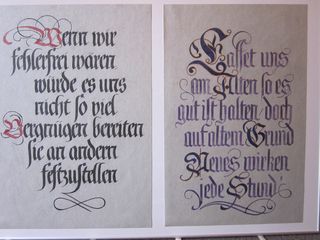 Wenn wir
fehlerfrei wären
würde es uns
nicht so viel
Vergnügen bereiten
sie an andern
festzustellen
Lasset uns
am Alten so es
gut ist halten doch
auf altem Grund
Neues wirken
jede Stund'